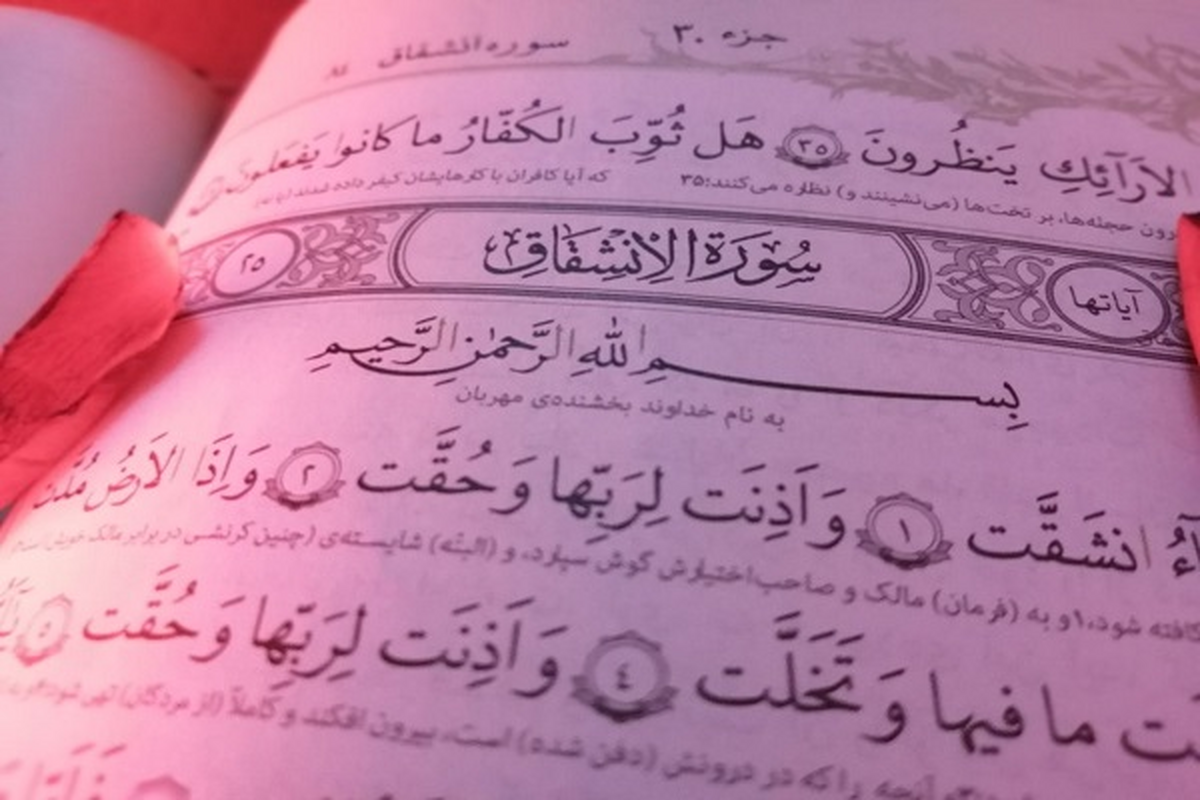 جزء ۳۰ سوره انشقاق ۸۴
الاَرَآئِكِ يَنظُرونَ ۳۵ هَل ثُوِّبَ الكُفّارُ ما كانوا يَفعَلونَ
حجله‌ها، بر تخت‌ها (می‌نشینند و) نظاره می‌کنند؛۳۵ که آیا کافران با کارهایشان کیفر داده شدند
آیاتها سُورَةُ الاِنشقاق ۲۵
بِسمِ اللهِ الرَّحمٰنِ الرَّحيمِ
به نام خداوند بخشنده‌ی مهربان
انشَقَّت ۱ وَ اَذِنَت لِرَبِّها وَ حُقَّت ۲ وَ اِذَا الاَرضُ مُدَّت
شود،۱ و به (فرمان) مالک و صاحب‌اختیارش گوش سپارد، و (البتّه) شایسته‌ی (چنین کرنشی در برابر مالک خویش
ما فيها وَ تَخَلَّت ٤ وَ اَذِنَت لِرَبِّها وَ حُقَّت ۵
آنچه را که در درونش (دفن شده) است، بیرون افکند و کاملاً (از مردگان) تهی شود؛